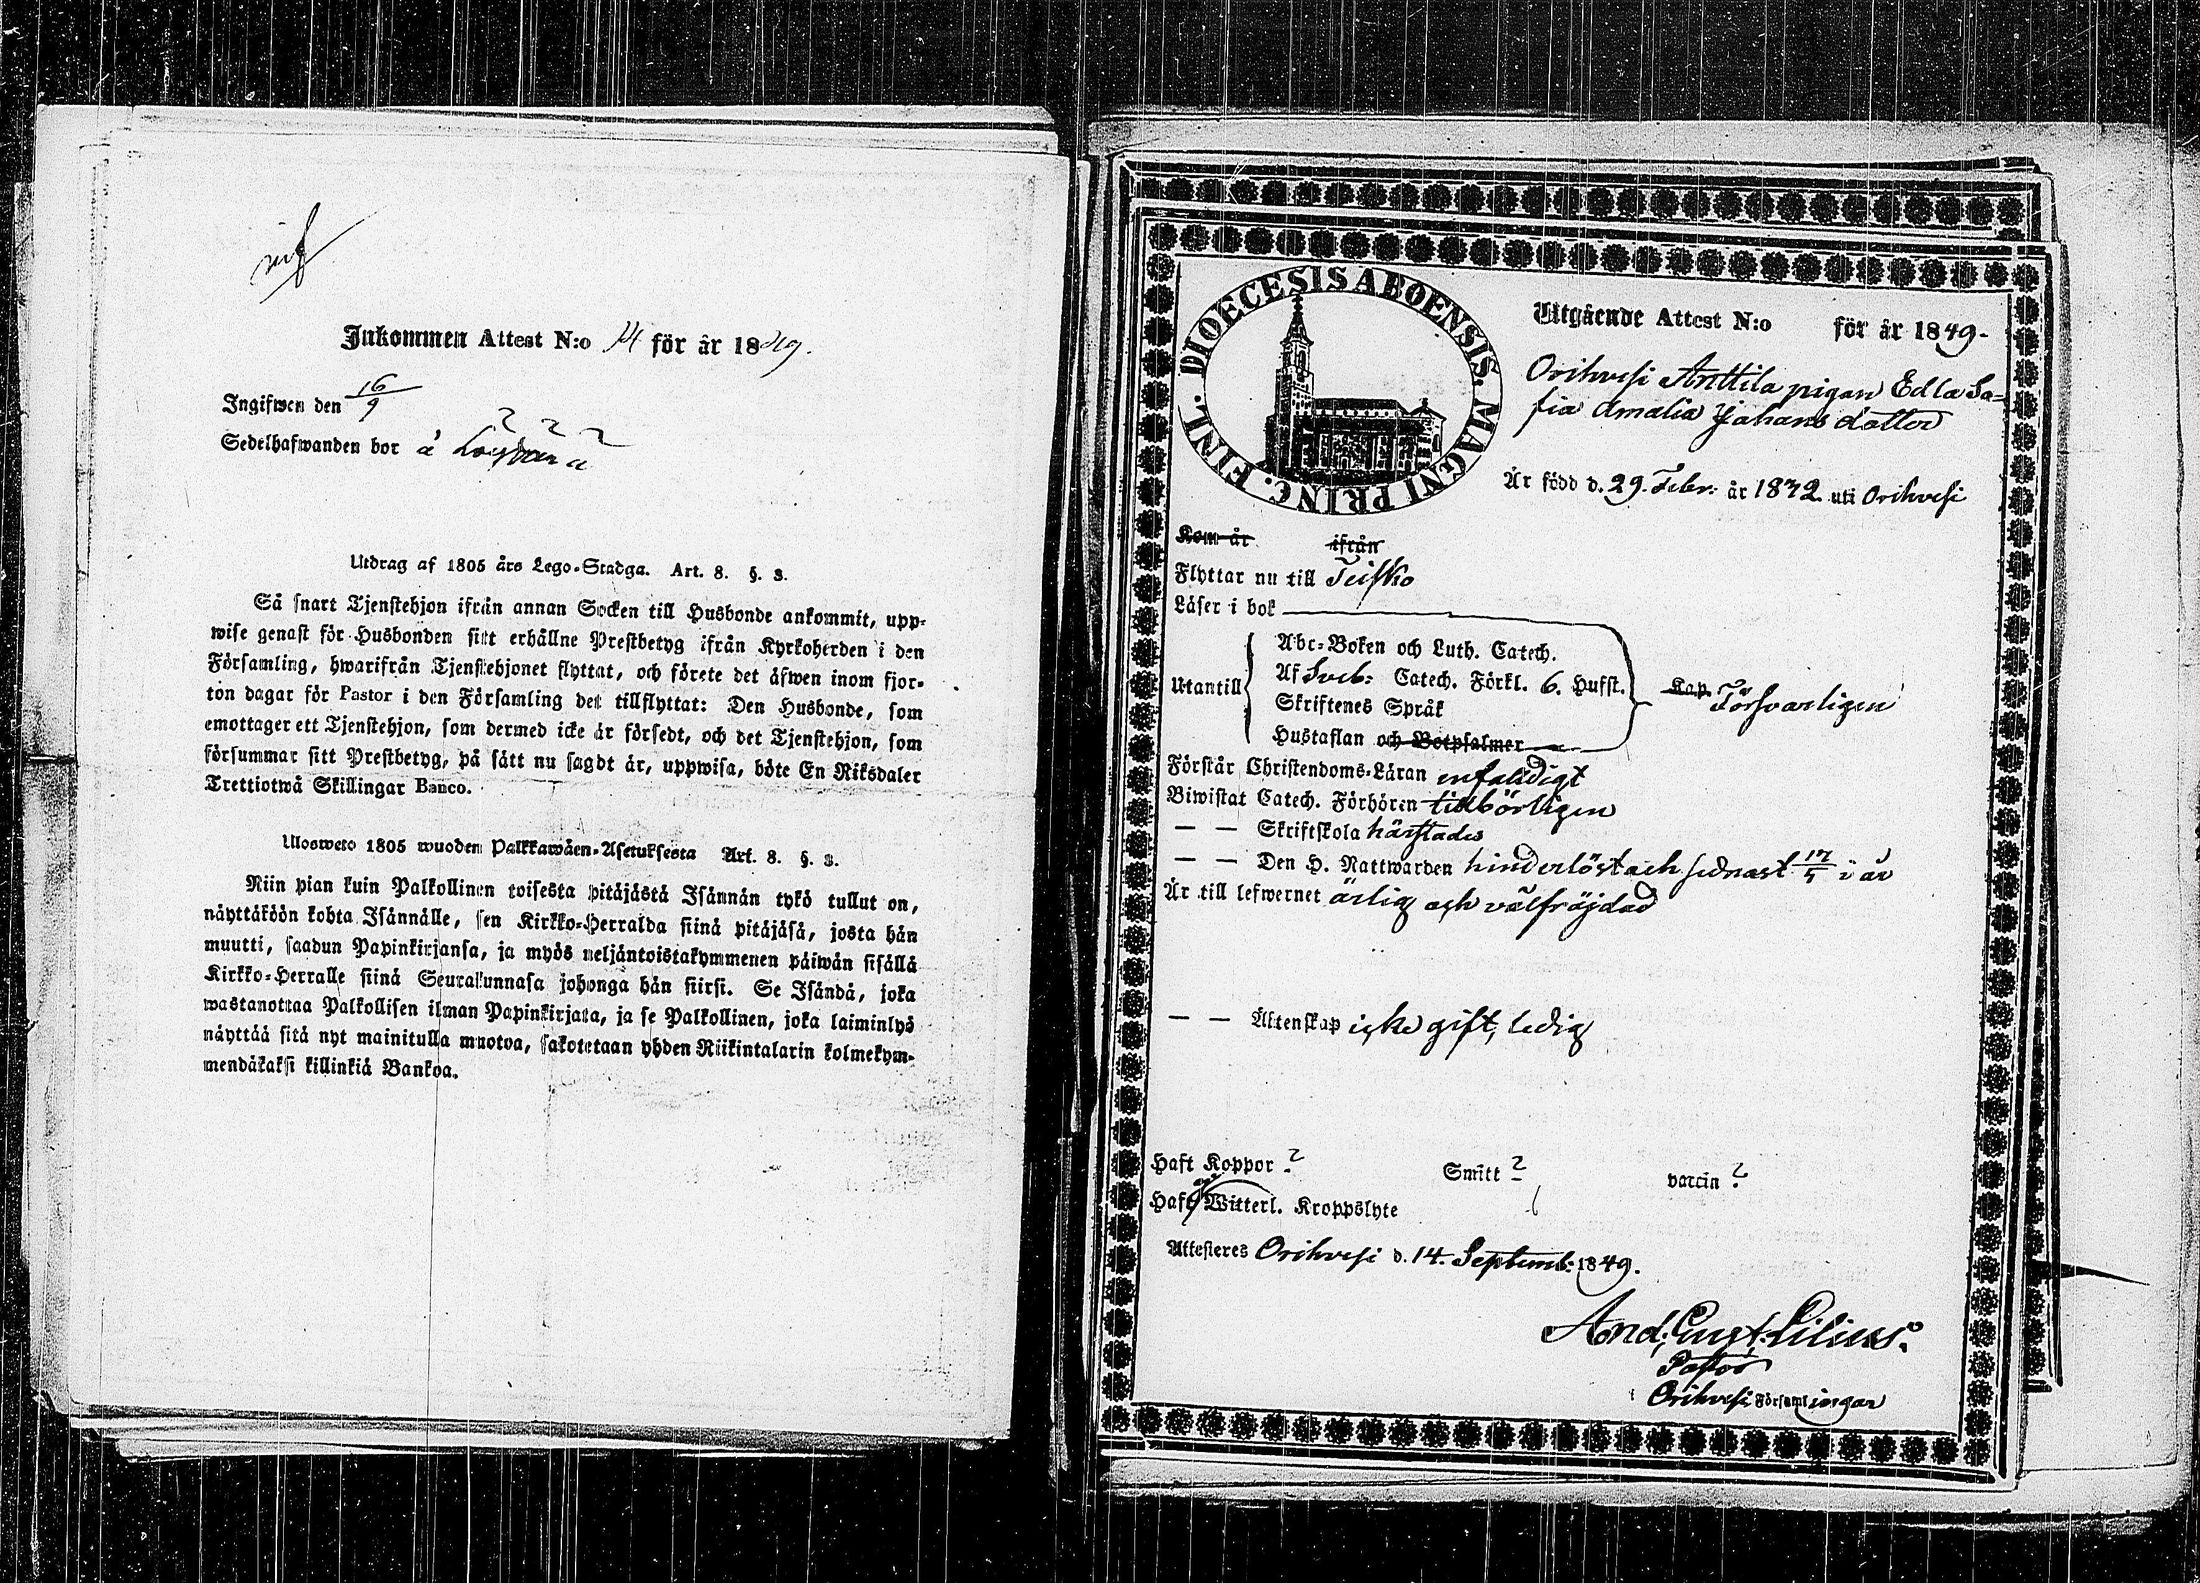 Inkommen Attest N:o 14 för år 1849.
Ingifwen den 16/9
Sedelhafwanden bor å
Utdrag af 1805 års Lego-Stadga. Art. 8. §. 3.
Så snart Tjenstehjon ifrån annan Socken till Husbonde ankommit, upp-
wise genast för Husbonden sitt erhållne Prestbetyg ifrån Kyrkoherden i den
Församling, hwarifrån Tjenstehjonet flyttat, och förete det äfwen inom fjor-
ton dagar för Pastor i den Församling det tillflyttat: Den Husbonde, som
emottager ett Tjenstehjon, som dermed icke är försedt, och det Tjenstehjon, som
försummar sitt Prestbetyg, på sätt nu sagdt är, uppwisa, böte En Riksdaler
Trettiotwå Skillingar Banco.
Ulosweto 1805 wuoden Palkkawäen-Asetuksesta Art. 8. §. 3.
Niin pian kuin Palkollinen toisesta pitäjästä Isännän tykö tullut on,
näyttäköön kohta Isännälle, sen Kirkko-Herralda siinä pitäjäsä, josta hän
muutti, saadun Papinkirjansa, ja myös neljäntoistakymmenen päiwän sisällä
Kirkko-Herralle siinä Seurakunnasa johonga hän siirsi. Se Isändä, joka
wastanottaa Palkollisen ilman Papinkirjata, ja se Palkollinen, joka laiminlyö
näyttää sitä nyt mainitulla muotoa, sakotetaan yhden Riikintalarin kolmekym-
mendäkaksi killinkiä Bankoa.
DIOECESIS ABOENSIS. MAGNI PRINC. FINL.
Utgående Attest N:o för år 1849-
Orihvesi Anttila pigan Edla So-
fia Amalia Johans dotter
Är född d. 29. Febr: år 1832 uti Orihvesi
Kom år ifrån
Flyttar nu till Teisko
Läser i bok
Utantill
Abc-Boken och Luth. Catech.
Af Sveb: Catech. Förkl. 6. Hufst.
Skriftenes Språk
Hustaflan och Botpsalmer
Kap. Försvarligen
Förstår Christendoms-Läran enfaldigt
Biwistat Catech. Förhören tillbörligen
— — Skriftskola härstädes
— — Den H. Nattwarden hinderlöst och sednast 17/5 i år
Är till lefwernet ärlig och välfräjdad
— — Äktenskap icke gift, ledig
Haft Koppor ? Smitt ? vaccin ?
Haft Witterl. Kroppslyte
Attesteres Orihvesi d. 14. Septemb: 1849.
And. Gust. Lilius.
Pastor
i Orihvesi Församlingar